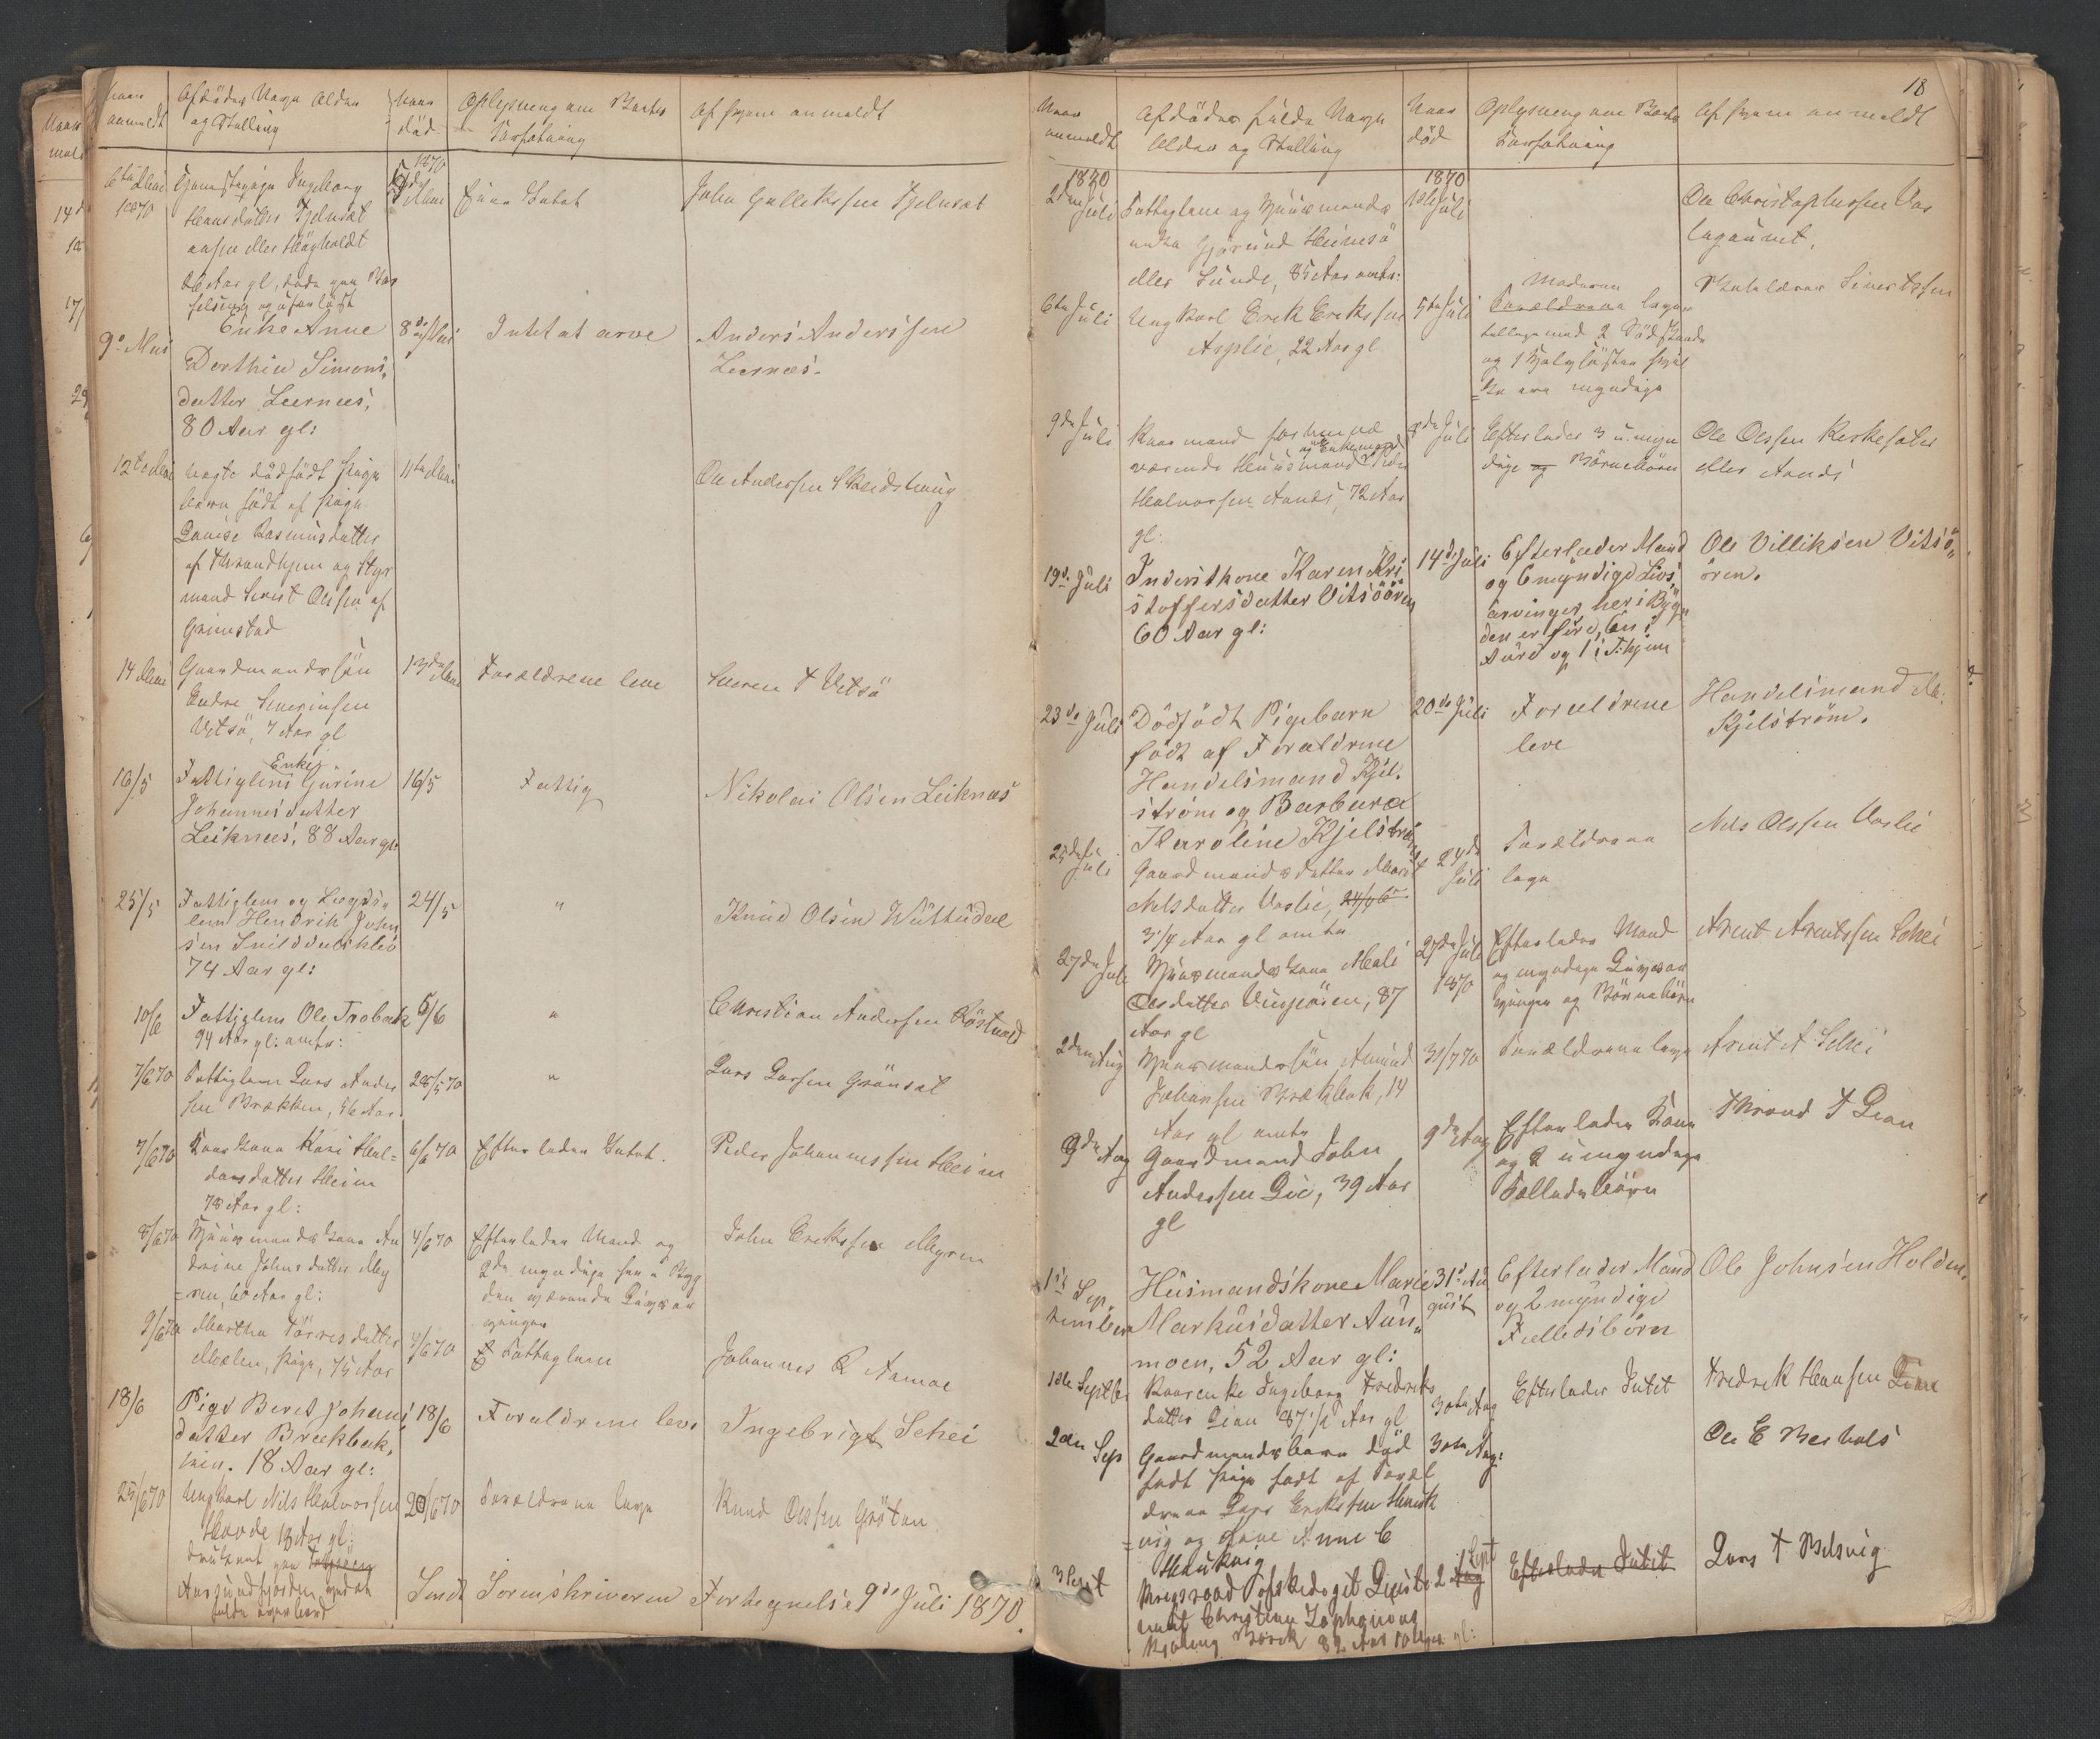 Naar anmeldt
Afdødes Navn Alder og Stilling
Naar død
Oplysning om Boets Forfatning
Af hvem anmeldt
6te Mai 1870
Tjenestepige Ingeborg
Hansdatter Fjelnset
1870
5te Mai
Eier Intet
John Gulleksen Fjelnset
26 Aar gl, døde paa Bar
selseng og uforløst
9de Mai
Enke Anne
Dorthea Simons,
datter Leernes,
80 Aar gl:
8de Mai
Intet at arve
Anders Anderssen
Leernes.
12te Mai
Uægte dødfødt Pige
barn, født af Pige
Lovise Rasmusdatter
af Throndhjem og Styr
mand Olssen af
Grimstad
11te Mai
Ole Anderssen Skeidshaug
14 Mai
Gaardmandssøn
Endre Severinsen
Vitsø, 7 Aar gl
13de Mai
Forældrene leve
T Vitsø
16/5
Enke
Fattiglem Gurine
Johannesdatter
Leiknes, 88 Aar gl:
16/5
Fattig
Nikolai Olsen Leiknes
25/5
Fattiglem og Lægds,
lem Hendrik John
sen Snilddalsklev
74 Aar gl:
24/5
"
Knud Olsen Wuttudal
10/6
Fattiglem Ole Trobak
94 Aar gl: omtr:
5/6
"
Christian Anderssen Røstvold
7/6 70
Fattiglem Lars Ander
sen Brækken, 56 Aar
28/5 70
"
Lars Larsen Grønset
7/6 70
Kaarkone Kari Hal=
dorsdatter Heim
78 Aar gl:
6/6 70
Efterlader Intet.
Peder Johannessen Heim
8/6 70
Huusmandskone An
drine Johnsdatter Myr
=en, 60 Aar gl:
4/6 70
Efterlader Mand og
2de myndige her i Byg
den værende Livsar
vinger
John Erikssen Myren
9/6 70
Martha Tørresdatter
Mælen, Pige, 75 Aar
4/6 70
Fattiglem
Johannes L Aamoe
18/6
Pige Beret Johans,
datter Brækbak,
18 Aar gl:
18/6
Forældrene leve
Ingebrigt Schei
25/6 70
Ungkarl Nils Halvorsen
Hovde 18 Aar gl:
druknet paa
Aursundfjorden ved at
falde overbord
20/6 70
Forældrene leve
Knud Olssen Grøtan
Sendt Sorenskriveren Fortegnelse 9de Juli 1870.
18
Naar anmeldt
Afdødes fulde Navn Alder og Stilling
Naar død
Oplysning om Boets Forfatning
Af hvem anmeldt
1870
2den Juli
Fattiglem og Huusmands
enke Gjørund Heimsø
eller Sunde, 85 Aar omtr:
1870
1ste Juli
Ole Christophersen
6te Juli
Ungkarl Erik Erikssen
Asplie, 22 Aar gl
5te Juli
Moderen
Forældrene lever
tillige med 2 Sødskende
og 1 Halvsøster hvil
ke ere myndige
Sivertssen
9de Juli
Kaarmand forhenvæ
og Enkemand
værende Huusmand Peder
Halvorsen Aunds, 72 Aar
gl:
8de Juli
Efterlader 3 u.myn
dige Børnebørn
Ole Olssen Kirkesæter
eller Aunds
19de Juli
Inderstkone Karen Kri
stoffersdatter Vitsøøren
60 Aar gl:
14de Juli
Efterlader Mand
og 6 myndige Livs,
arvinger, her i Byg,
den er fire, en i
Aure og 1 i T.hjem
Ole Villiksen Vitsø,
øren.
23de Juli
Dødfødt Pigebarn
født af Forældrene
Handelsmand Kjel,
strøm og Barbara
Karoline Kjelstrøm
20de Juli
Forældrene
leve
Handelsmand
Kjelstrøm.
25de Juli
Gaardmandsdatter Marit
Nelsdatter Vaslie,
3 1/4 Aar gl omtr
24de Juli
Forældrene
leve
Nels Olssen Vaslie
27de Juli
Huusmandskone Mali
Olsdatter, 87
Aar gl
27de Juli 1870
Efterlader Mand
og myndige Livsar
vinger og Børnebørn
Arent Arentssen Schei
2den Aug
Huusmandssøn Amund
Johansen Brækbak, 14
Aar gl omtr
31/7 70
Forældrene leve
Arent A Schei
9de Aug
Gaardmand John
Anderssen Lie, 39 Aar
gl
9de Aug
Efterlader Kone
og 2 umyndige
Fælledsbørn
Thrond T Lian
1ste Sep,
tember
Husmandskone Marie
Markusdatter Aun,
moen, 52 Aar gl:
31te Au
gust
Efterlader Mand
og 2 myndige
Fælledsbørn
Ole Johnsen Holden.
1ste Septbr
Kaarenke Ingeborg Fredriks
datter Lian 87 1/2 Aar gl
30te Aug
Efterlader Intet
Fredrik Hansen Lian
2den Sep
Gaardmandsbarn død
født Pige født af Foræl
drene Lars Erikssen Hauk
=vig og Kone Anne E
Haukvig
30te Aug:
Ole E Berhols
3 Sept
Krigsraad afskediget Leuite
nant Christian Zephanias
Mørch 82 Aar gl:
2 Sept
Aug
Efterlader Intet
Lars T Belsvig